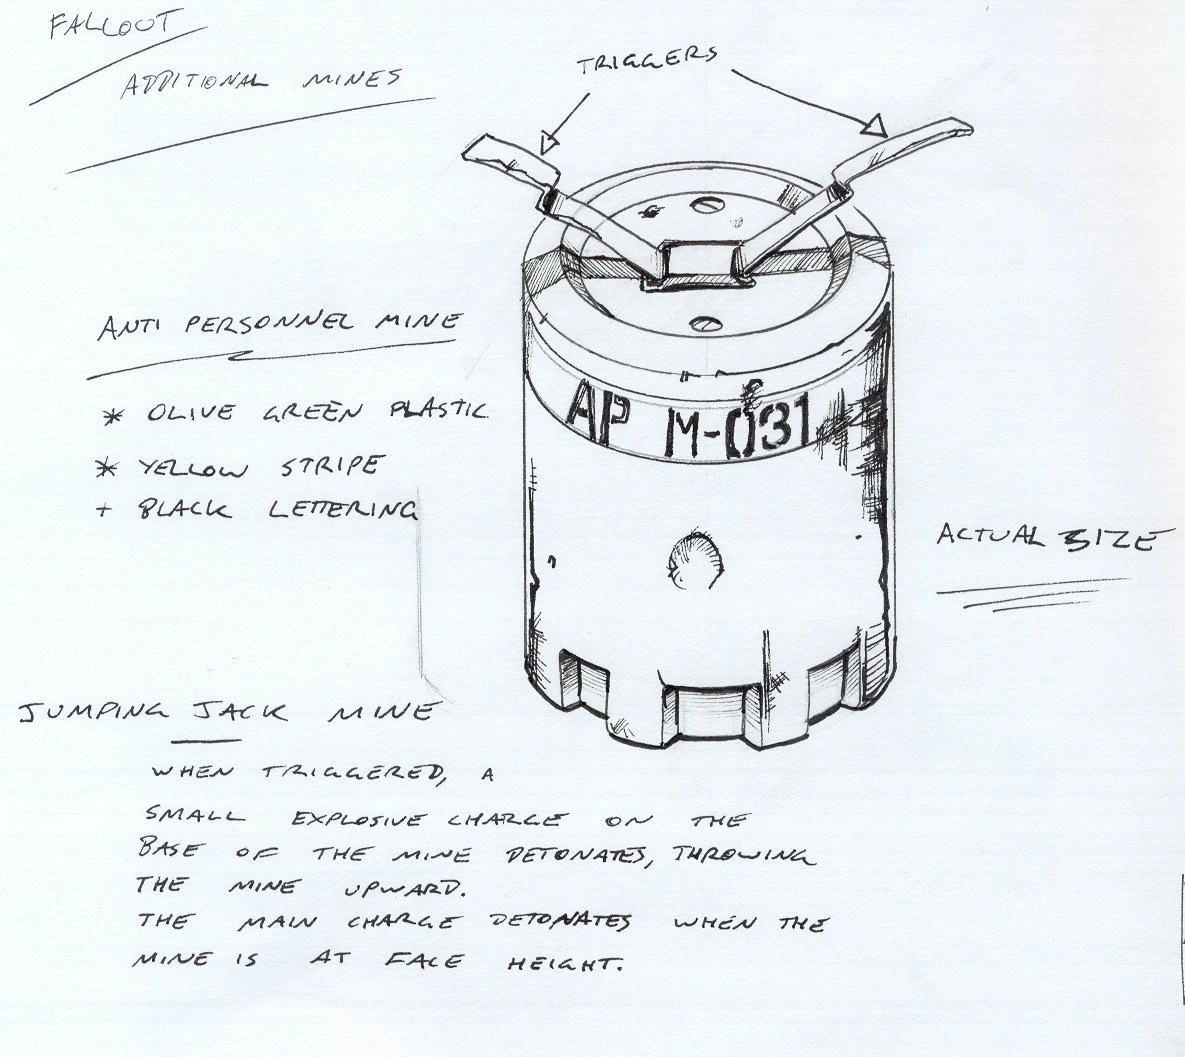 FALLOUT
ADDITIONAL MINES
TRIGGERS
ANTI PERSONNEL MINE
* OLIVE GREEN PLASTIC
* YELLOW STRIPE
+ BLACK LETTERING
AP M-031
ACTUAL SIZE
JUMPING JACK MINE
WHEN TRIGGERED, A
SMALL EXPLOSIVE CHARGE ON THE
BASE OF THE MINE DETONATES, THROWING
THE MINE UPWARD.
THE MAIN CHARGE DETONATES WHEN THE
MINE IS AT FACE HEIGHT.